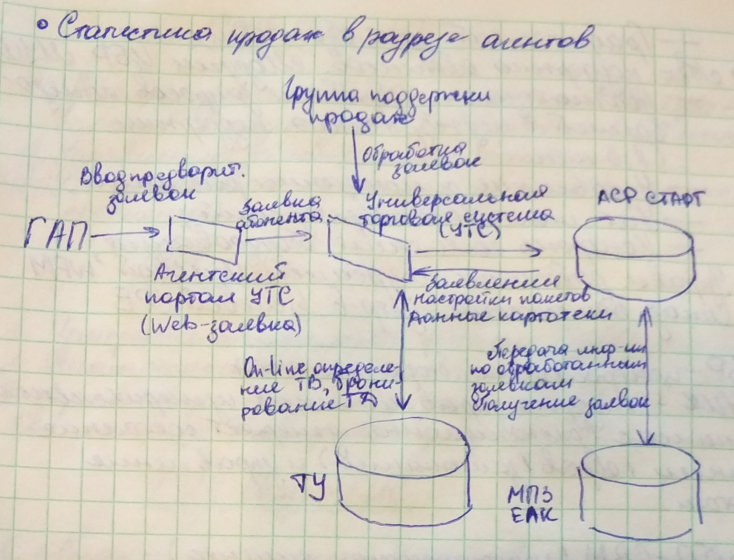 • Статистика продаж в разрезе агентов
Группа поддержки
продаж
Обработка
заявок
Ввод предварит.
заявок
ГАП
Заявка
абонента
Агентский
портал УТС
(Web-заявка)
Универсальная
торговая система
(УТС)
АСР СТАРТ
Заявления
Настройки пакетов
Данные картотеки
On-line определе-
ние ТВ, брони-
рование ТД
Передача инф-ии
по обработанным
заявкам
Получение заявок
ТУ
МПЗ
ЕАК